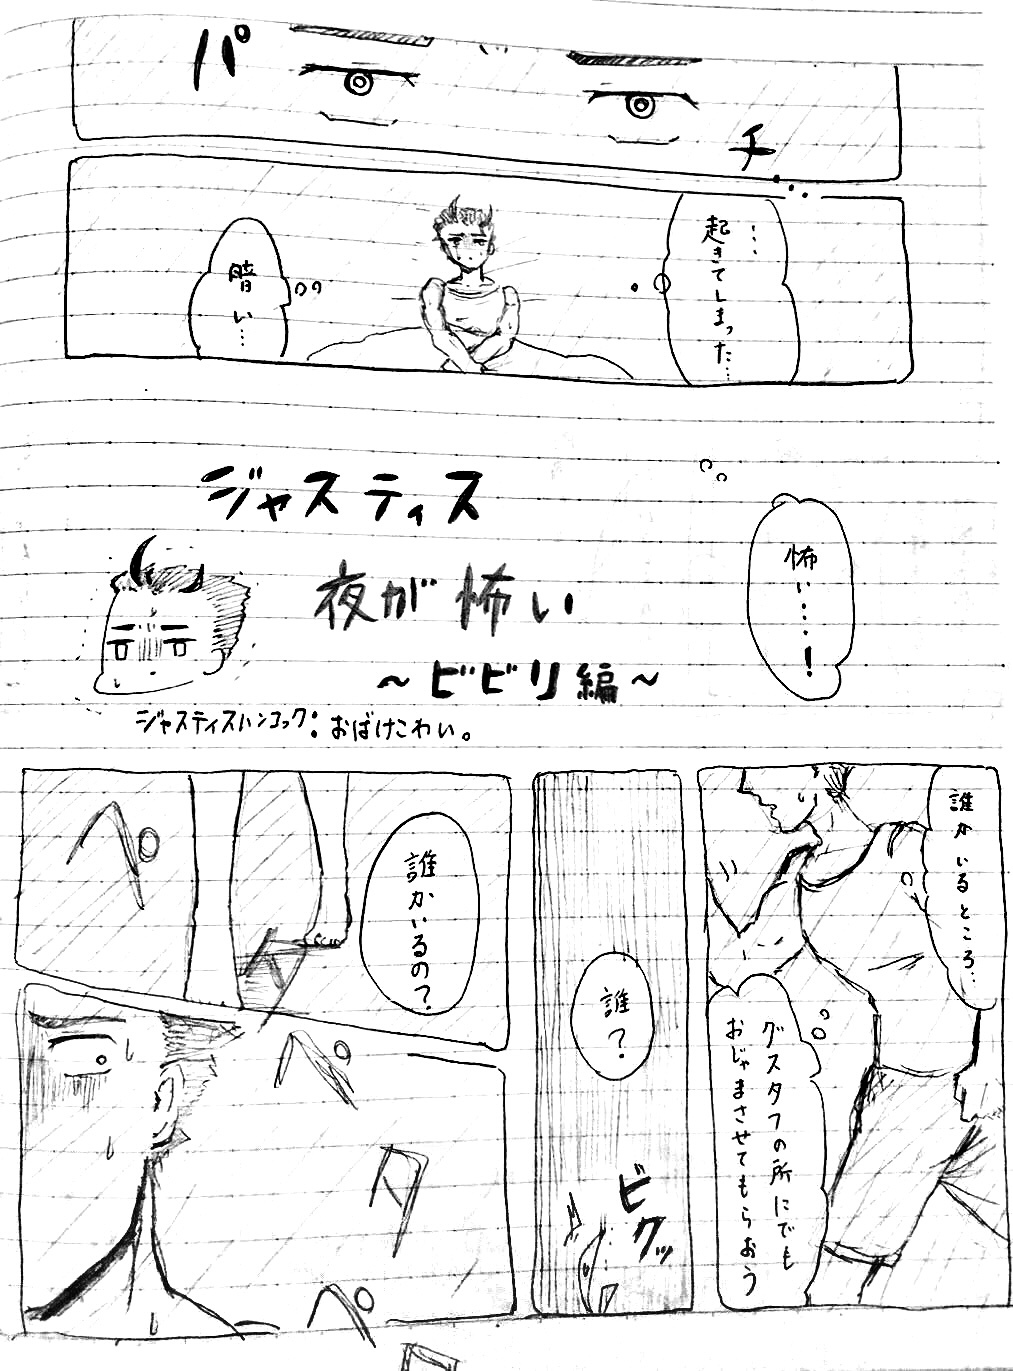 パ
チ...
...
起きてしまった...
暗い...
怖い....!
ジャスティス
夜が怖い
～ビビリ編～
ジャスティスハンコック：おばけこわい。
誰かいるところ...
グスタフの所にでも
おじゃまさせてもらおう
誰？
ビクッ
誰かいるの？
ペ
タ
ペ
タ
ペ
タ